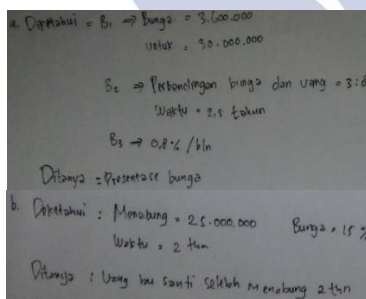 a. Diketahui = B₁ ⇒ Bunga = 3.600.000
untuk = 30.000.000
B₂ ⇒ Perbandingan bunga dan uang = 3:
Waktu = 2,5 tahun
B₃ → 0,8% / bln
Ditanya = Presentase bunga
b. Diketahui : Menabung = 25.000.000 Bunga = 15 %
Waktu = 2 thn
Ditanya : Uang bu santi setelah menabung 2 thn